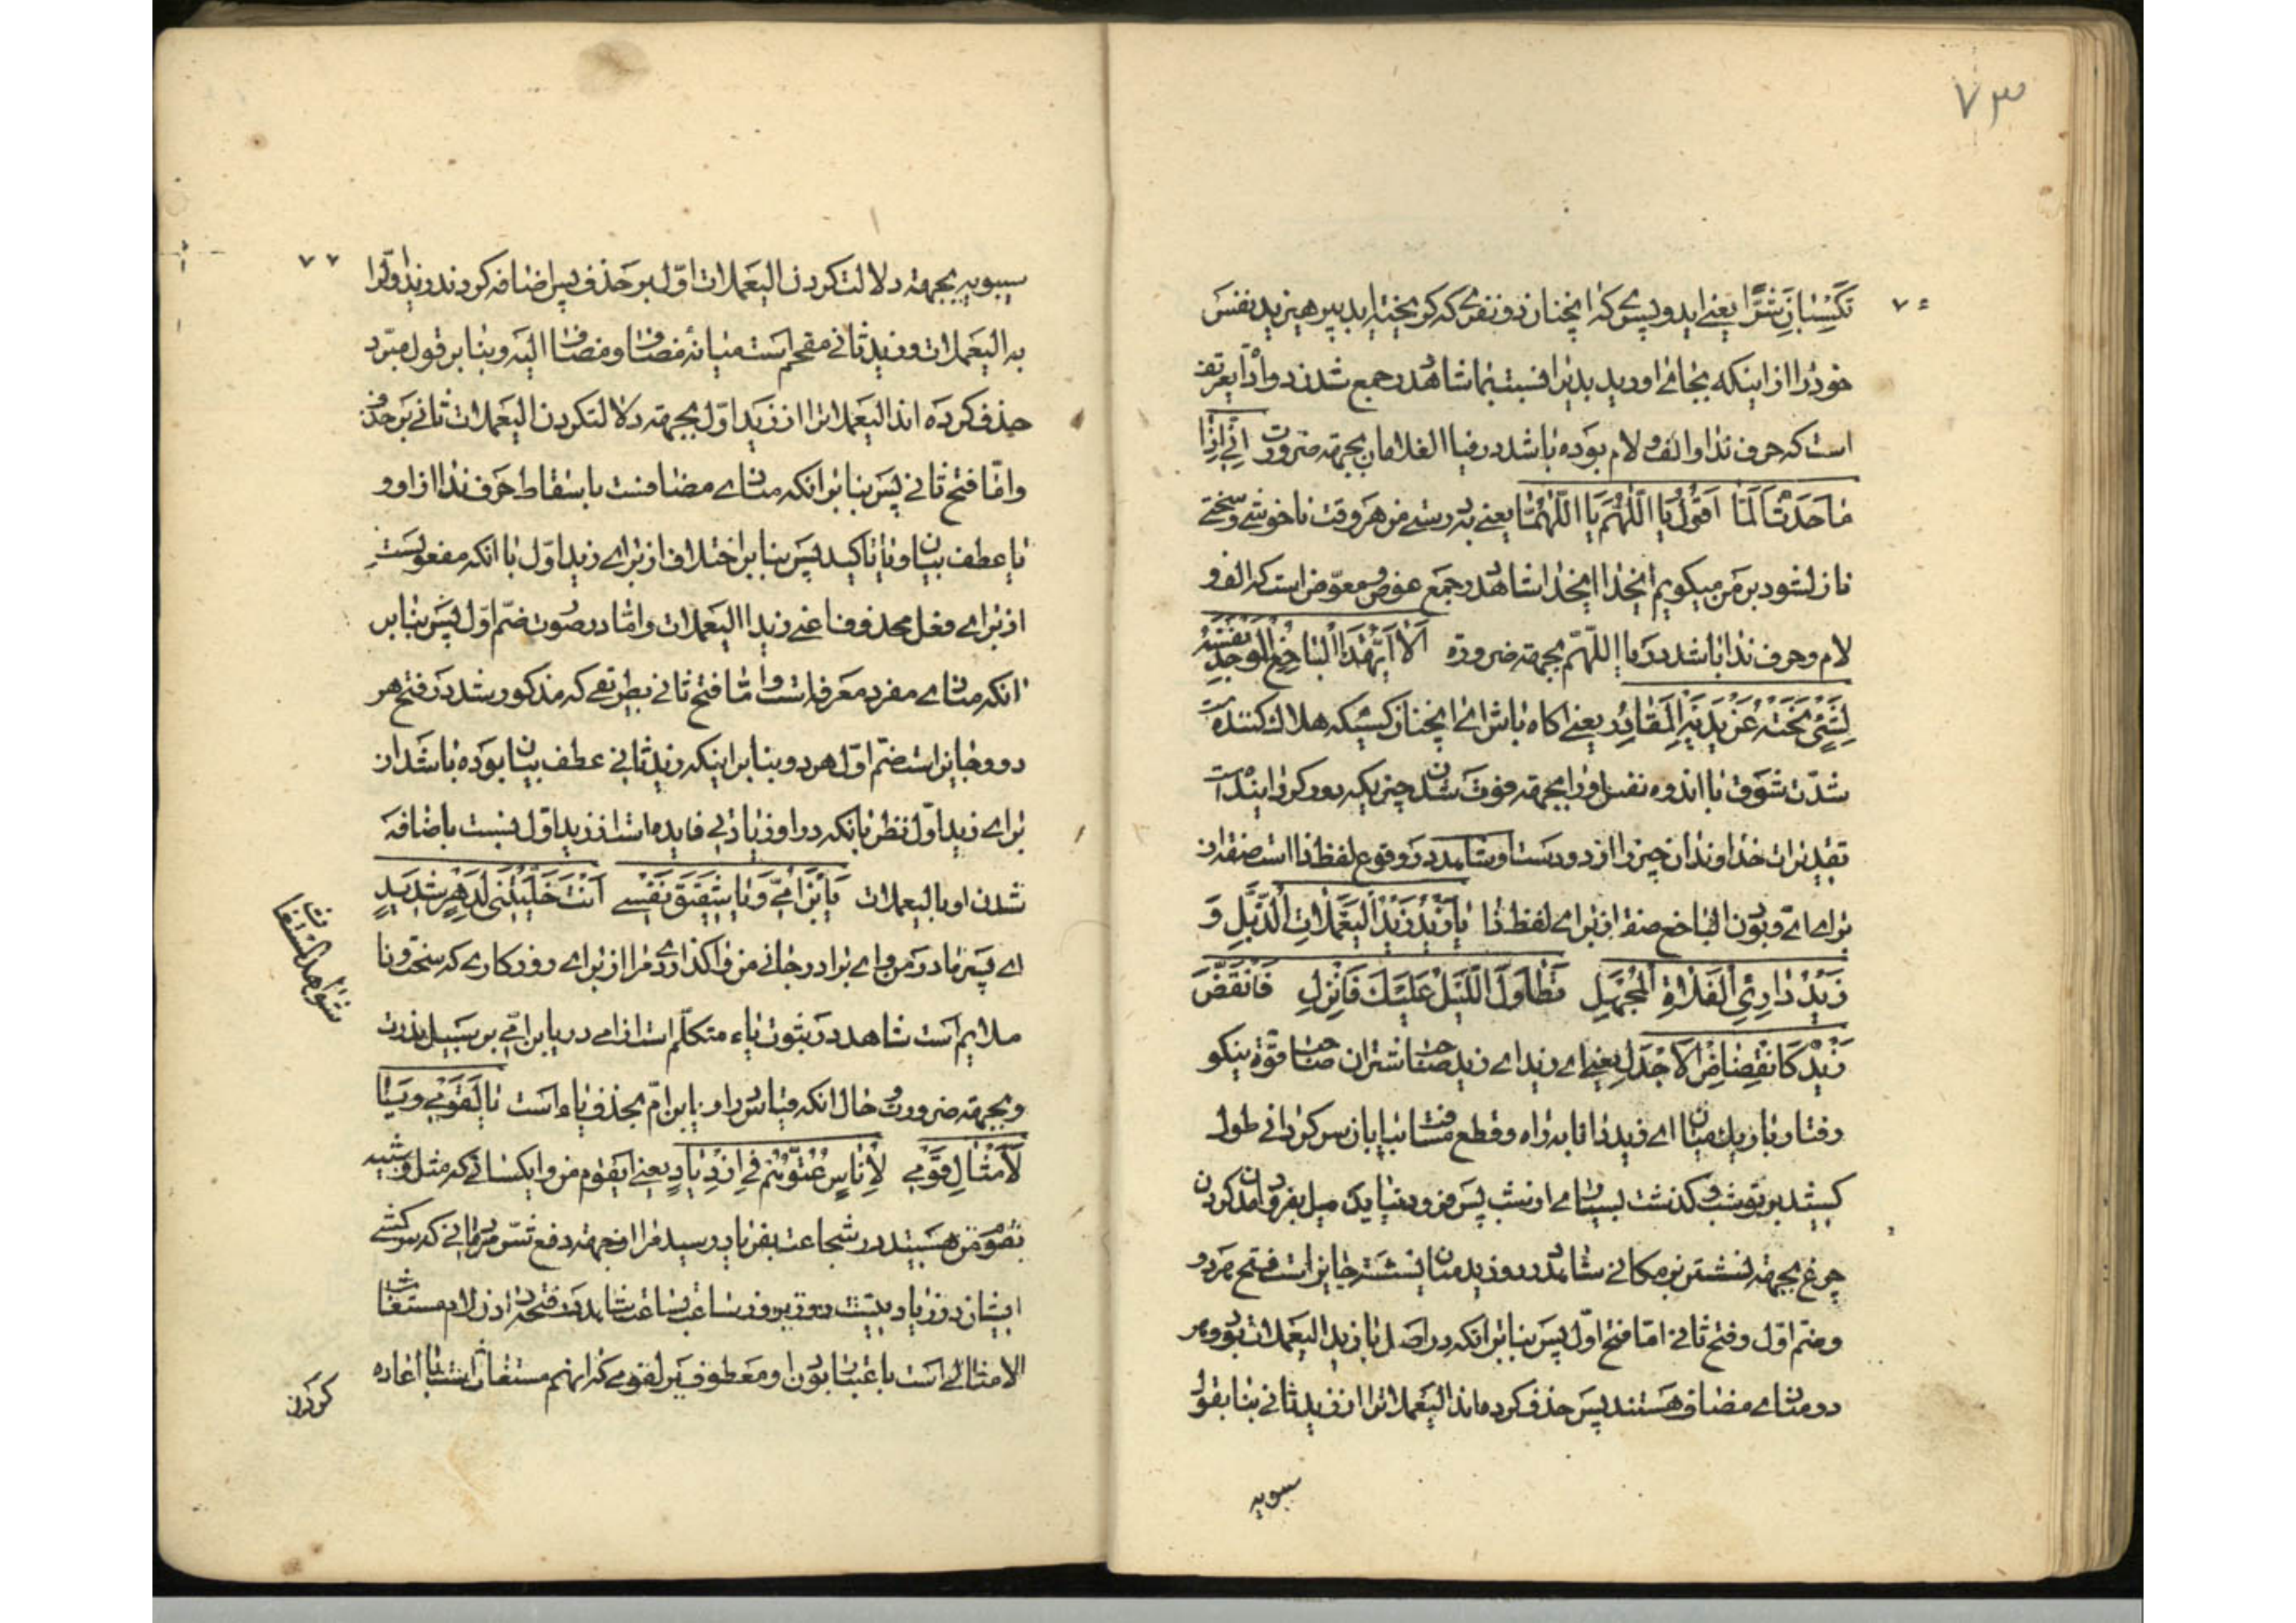 ۷۳
تَكْسِبَانِ شَرًّا یعنے ایدو پسرے که انچنان دو نفرے که کریخته اید بپرهیزید نفس
خود را از اینکه بجائے اورید بدیرا نسبت بما شاهد در جمع شدن دو اداة تعریف
است که حرف ندا و الف و لام بوده باشد در فیا الغلامان بجهته ضرورت اِنِّے اِذَا
مَا حَدَثٌ اَلَمَّا اَقُولُ یَا اَللّٰهُمَّ یَا اَللّٰهُمَّا یعنے بدرستے من هر وقت ناخوشے و سختے
نازل شود بر من میکویم ایخدا ایخدا شاهد در جمع عوض و معوض است که الف و
لام و حرف ندا باشد در یا اللّهمّ بجهته ضرورة اَلَا اَیُّهٰذَا الْبَاخِعُ الْوَجْدُ نَفْسَهُ
لِشَیْءٍ نَحَتْهُ عَنْ یَدَیْهِ الْمَقَادِرُ یعنے اکاه باش اے انچنان کسیکه هلاک کننده است
شدّت شوق یا اندوه نفس او را بجهته فوت شدن چیزیکه دور کردانیده است
تقدیرات خداوندان چیز را از دو دست او شاهد در وقوع لفظ ذا است صفه از
براے اے و بودن الباخع صفه از براے لفظ ذا یَا زَیْدُ زَیْدَ الْیَعْمَلَاتِ الذُّبَّلِ وَ
زَیْدُ دَارِیِ الْفَلَاةِ الْمَجْهَلِ تَطَاوَلَ اللَّیْلُ عَلَیْكَ فَانْزِلِ فَانْقَضَّ
زَیْدٌ كَانْقِضَاضِ الْاَجْدَلِ یعنے اے زید اے زید صاحب شتران صاحب قوّة نیکو
رفتار باریک میان اے زید دانا به راه و قطع مسافت بیابان سرکردانے طول
کیشد بر تو شب و کذشت بسیارے از شب پس فرود بیا یک میل بفرود امدن کردن
چرغ بجهته نشستن بر مکانے شاهد در دو زید منادا نیست جایز است فتح هر دو
و ضمّ اوّل و فتح ثانے امّا فتح اوّل پس بنا بر انکه در اصل یا زید الیعملات بود و هر
دو مناداے مضاف هستند پس حذف کرده اند الیعملات را از زید ثانے بنا بقول
سیبویه
سیبویه بجهته دلالت کردن الیعملات اوّل بر حذف پس اضافه کردند زید اوّل را
به الیعملات و زید ثانے مقحم است میانهٔ مضاف و مضاف الیه و بنا بر قول مبرّد
حذف کرده اند الیعملات را از زید اوّل بجهته دلالت کردن الیعملات ثانے بر حذف
و امّا فتح ثانے پس بنا بر انکه مناداے مضافست باسقاط حرف ندا از او و
یا عطف بیان و یا تاکید پس بنا بر اختلاف از براے زید اوّل یا انکه مفعولست
از براے فعل محذوف اعنے زید الیعملات و امّا در صورت ضمّ اوّل پس بنا بر
انکه مناداے مفرد معرفه است و امّا فتح ثانے بطریقے که مذکور شد در فتح هر
دو و جایز است ضمّ اوّل هر دو بنا بر اینکه زید ثانے عطف بیان بوده باشد از
براے زید اوّل نظر بانکه در او زیادتے فایده است از زید اوّل نسبت باضافه
شدن او بالیعملات یَا ابْنَ اُمِّے وَ یَا شُقَیِّقَ نَفْسِے اَنْتَ خَلَّیْتَنِی لِدَهْرٍ شَدِیدٍ
اے پسر مادر من و اے برادر جانے من واکذاردے مرا از براے روزکارے که سخت و نا
ملایم است شاهد در ثبوت یاء متکلّم است از امے در یا ابن امّے بر سبیل ندرت
و بجهته ضرورت و حال انکه قیاس در او یا ابن امّ بحذف یاء است یَا لَقَوْمِے وَ یَا
لَاَمْثَالِ قَوْمِے لِاُنَاسٍ عُتُوُّهُمْ فِے ازْدِیَادٍ یعنے ایقوم من و ایکسانے که مثل و شبیه
بقوم من هستید در شجاعت بفریاد رسید مرا از جهته دفع شرّ مردمانے که سرکشے
ایشان در زیادیست روز بروز ساعت بساعت شاهد در فتحه دادن لام مستغاث
لامثالے است باعتبار بودن او معطوف بر لقومے که انهم مستغاث است با اعاده
کردن
شواهد استغاثه